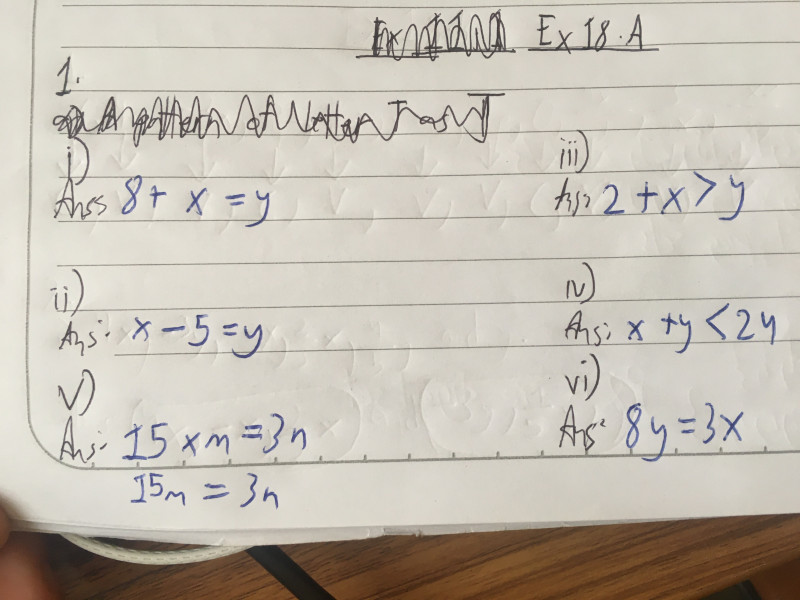 Ex 18.A
1.
i)
Ans: 8 + x = y
iii)
Ans: 2 + x > y
ii)
Ans: x - 5 = y
iv)
Ans: x + y < 24
v)
Ans: 15 x m = 3n
15m = 3n
vi)
Ans: 8y = 3x